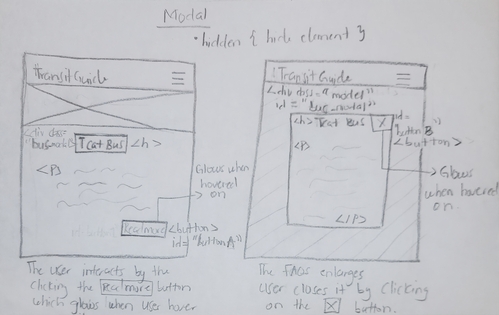 Modal
• hidden { hide element }
TransitGuide
<div class=
TCat Bus <h>
<P>
Glows when
hovered
on
Readmore <button>
id= "buttonA">
The user interacts by the
clicking the Readmore button
which glows when user hover
TransitGuide
<div class= "model"
id = "Bus_modal">
<h> TCat Bus X id=
"button B">
<button>
<P>
</P>
Glows
when hovered
on.
The FAQs enlarges
user closes it by clicking
on the X button.